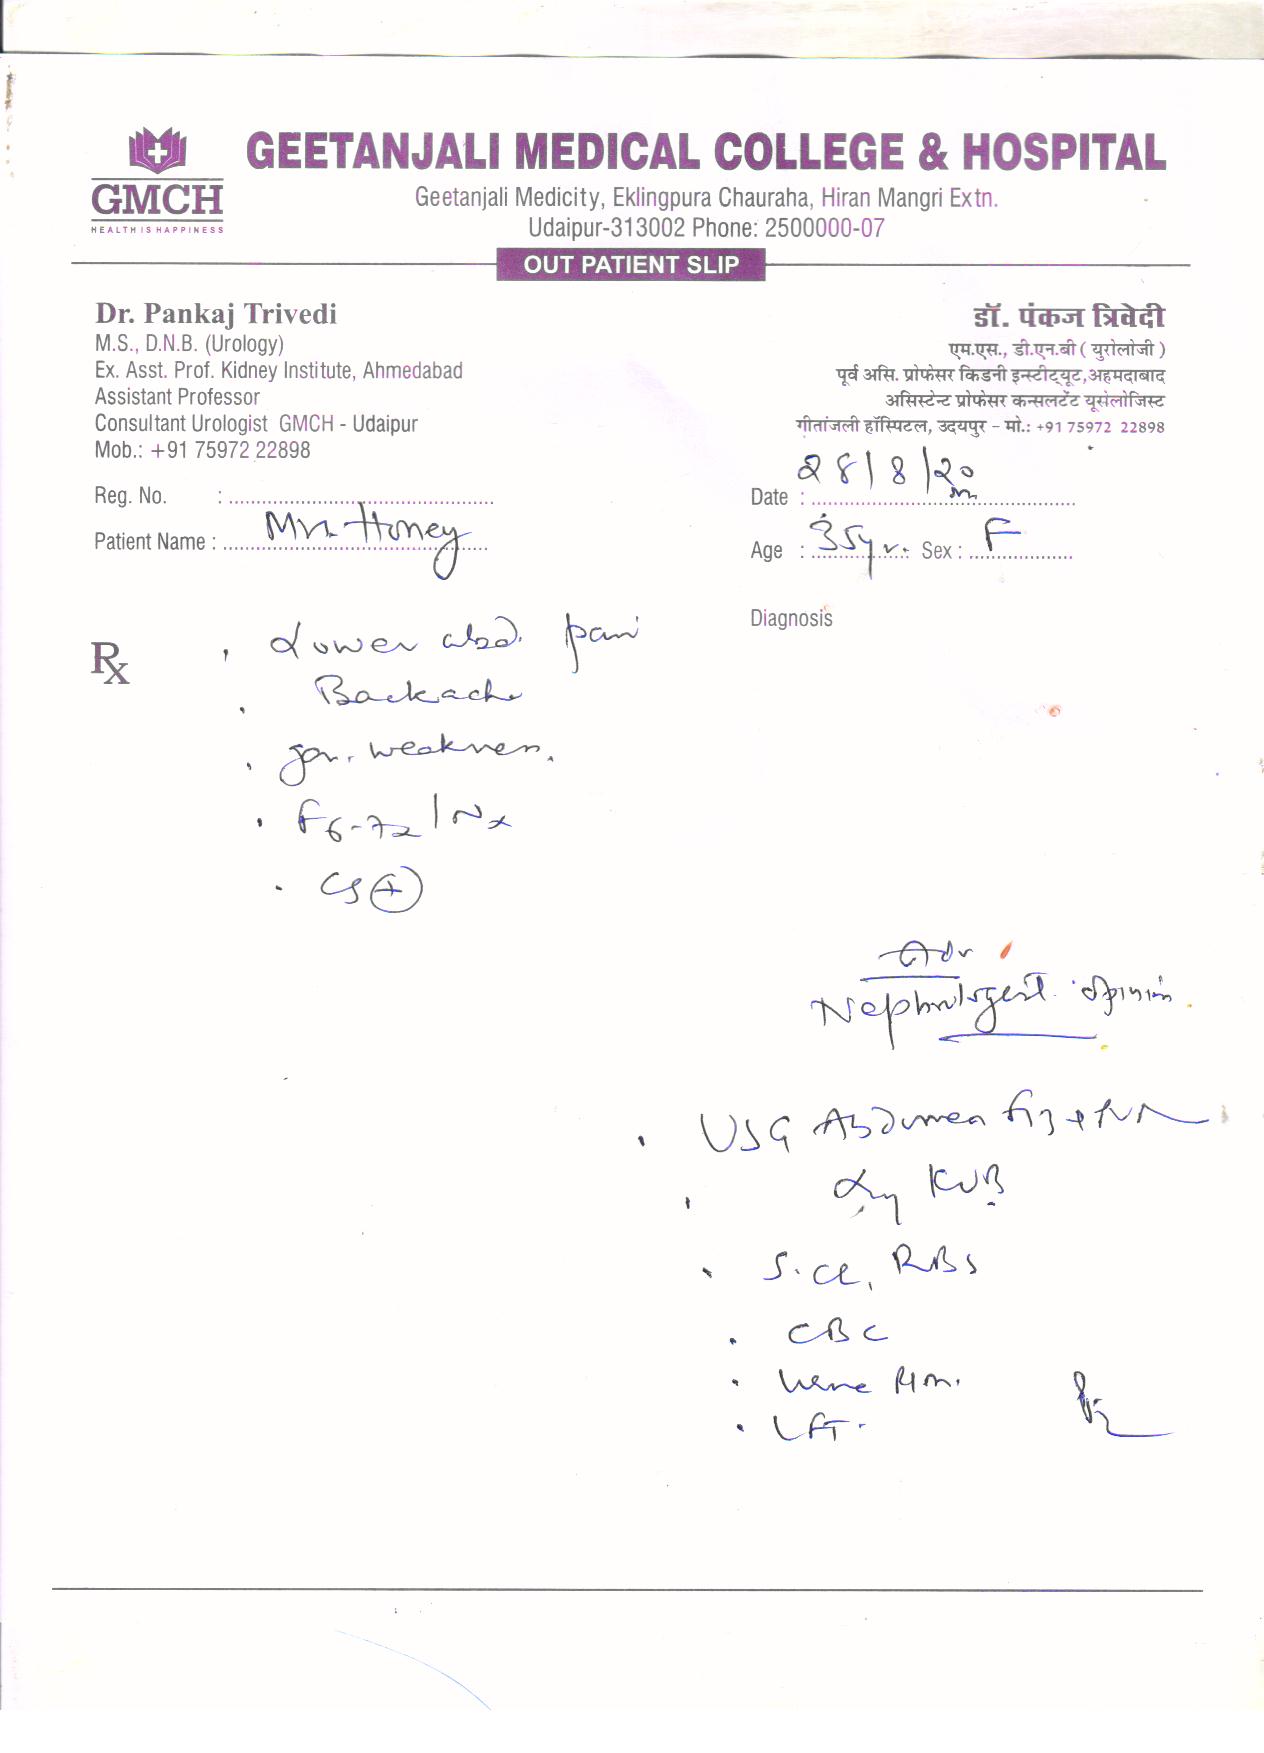 GMCH
HEALTH IS HAPPINESS
GEETANJALI MEDICAL COLLEGE & HOSPITAL
Geetanjali Medicity, Eklingpura Chauraha, Hiran Mangri Extn.
Udaipur-313002 Phone: 2500000-07
OUT PATIENT SLIP
Dr. Pankaj Trivedi
M.S., D.N.B. (Urology)
Ex. Asst. Prof. Kidney Institute, Ahmedabad
Assistant Professor
Consultant Urologist GMCH - Udaipur
Mob.: +91 75972 22898
डॉ. पंकज त्रिवेदी
एम.एस., डी.एन.बी ( युरोलोजी )
पूर्व असि. प्रोफेसर किडनी इन्स्टीट्यूट,अहमदाबाद
असिस्टेन्ट प्रोफेसर कन्सलटेंट यूरोलोजिस्ट
गीतांजली हॉस्पिटल, उदयपुर - मो.: +91 75972 22898
Reg. No. :
Date : 28/8/20
Patient Name : Mrs. Honey
Age : 35yr. Sex : F
Diagnosis
Rx
Lower abd. pain
Backache
gen. weakness.
CS +
Adv
Nephrologist opinion
USG Abdomen
KUB
S. Cr, RBS
CBC
Urine R/m.
LFT.